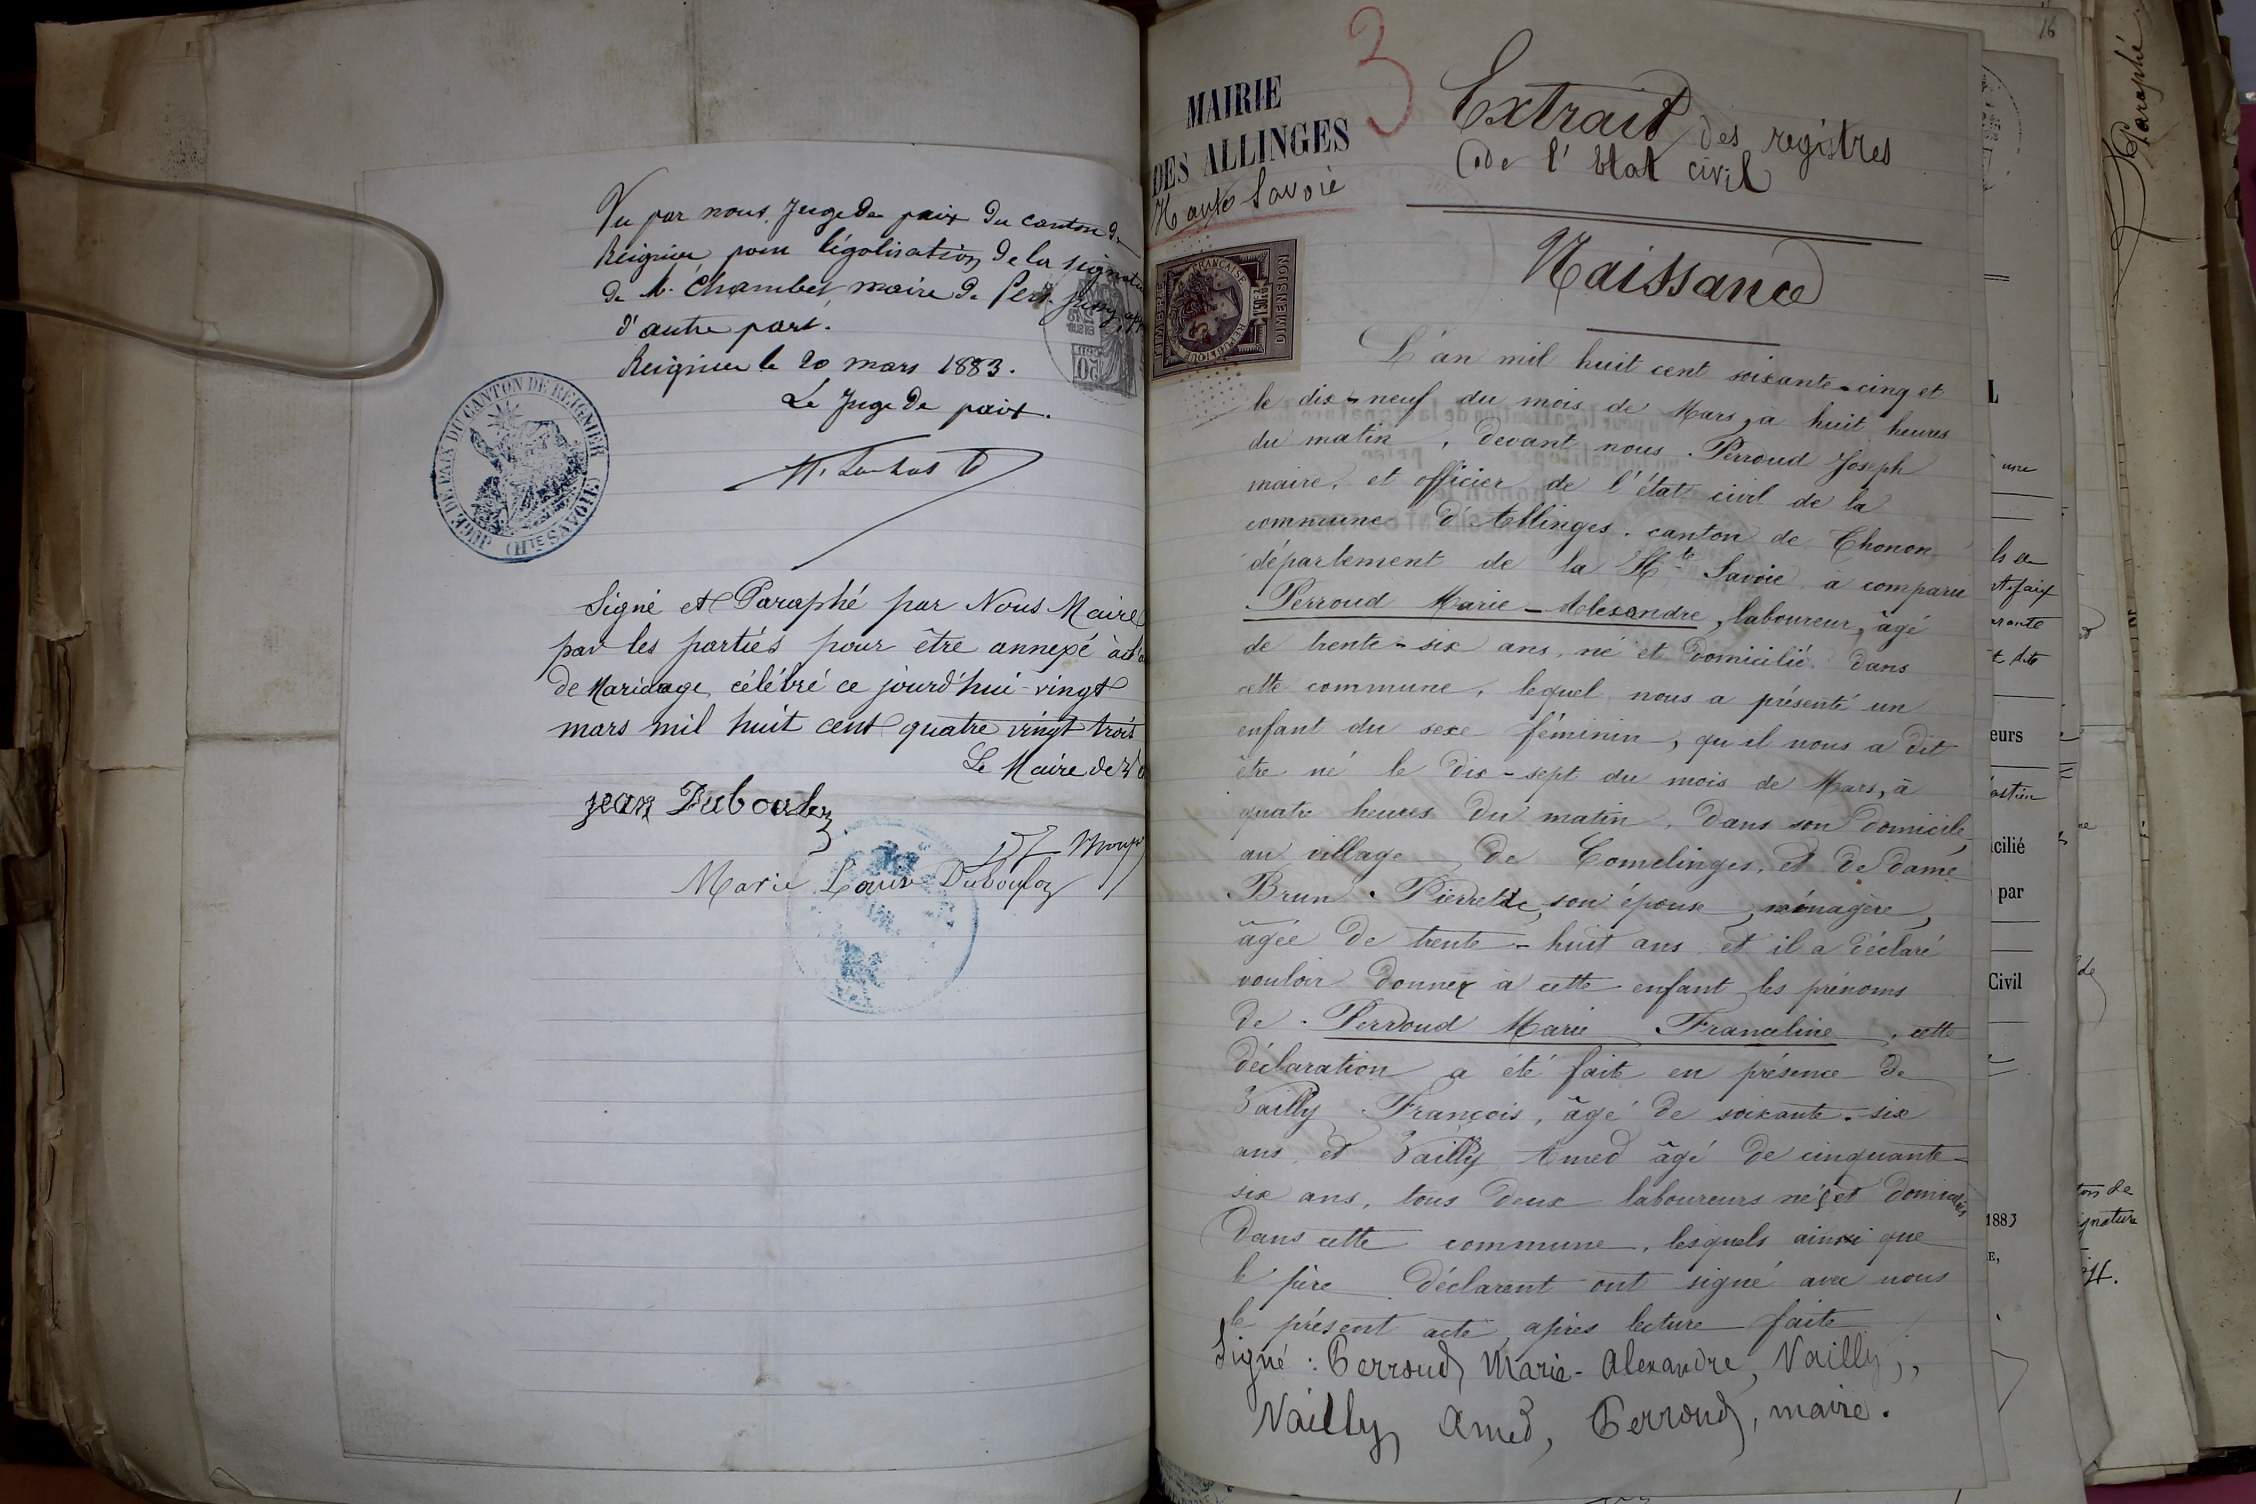 Vu par nous, Juge de paix du canton de
Reignier, pour légalisation de la signature
de M. Chambet maire de Pers-Jussy, app
d'autre part.
Reignier le 20 mars 1883.
Le Juge de paix.
JUGE DE PAIX DU CANTON DE REIGNIER
(HTE SAVOIE)
Signé et Paraphé par Nous Maire
par les parties pour être annexé à l'a
de Mariage célébré ce jourd'hui vingt
mars mil huit cent quatre vingt trois
Le Maire de
jean Dubouloz
Marie Louise Dubouloz
16
3
MAIRIE
DES ALLINGES
Haute Savoie
Extrait des registres
de l'état civil
Naissance
RÉPUBLIQUE FRANÇAISE
DIMENSION
L'an mil huit cent soixante-cinq et
le dix-neuf du mois de Mars, à huit heures
du matin, devant nous Perroud Joseph
maire, et officier de l'état civil de la
commune d'Allinges, canton de Thonon
département de la Hte Savoie a comparu
Perroud Marie-Alexandre, laboureur, âgé
de trente-six ans, né et domicilié dans
cette commune, lequel nous a présenté un
enfant du sexe féminin, qu'il nous a dit
être né le dix-sept du mois de Mars, à
quatre heures du matin, dans son domicile,
au village de Comelinges, et de dame
Brun Pierrette, son épouse, ménagère,
âgée de trente-huit ans et il a déclaré
vouloir donner à cette enfant les prénoms
de Perroud Marie Franceline, cette
déclaration a été faite en présence de
Vailly François, âgé de soixante-six
ans, et Vailly Amed âgé de cinquante-
six ans, tous deux laboureurs nés et domiciliés
dans cette commune, lesquels ainsi que
le père déclarent ont signé avec nous
le présent acte, après lecture faite
Signé : Perroud Marie-Alexandre, Vailly,,
Vailly Amed, Perroud, maire.
Paraphé
une
eurs
cilié
par
Civil
1883
gnature